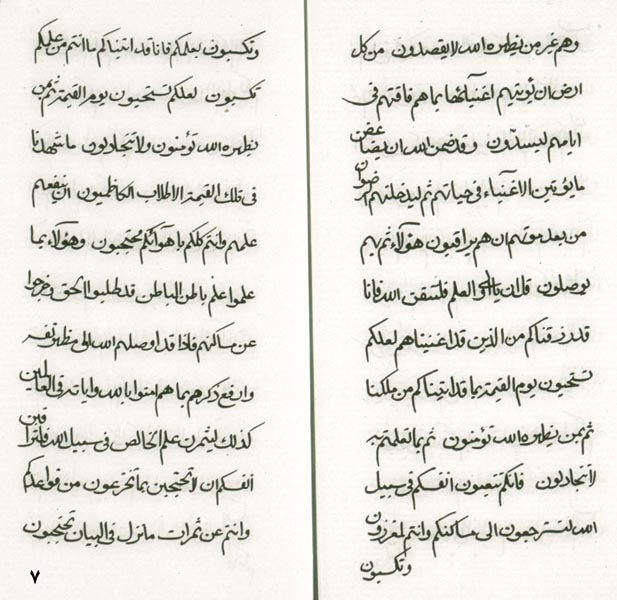 وهم غير من يظهره الله لا يقصدون من كل
ارض ان يؤتيهم اغنيآئها بما هم فاقتهم في
ايامهم ليسدّون وقد ضمن الله ان يضاعفن
ما يؤتين الاغنيآء في حياتهم ثم ليدخلنهم الرضوان
من بعد موتهم ان هم يراقبون هؤلآء ثم بهم
يوصلون قل ان يا اولى العلم فلتتقن الله فانا
قد رزقناكم من الذين قد اغنيناهم لعلكم
تستحيون يوم القيمة بما قد اتيناكم من ملكنا
ثم بمن يظهره الله تؤمنون ثم بما تعلمتم به
لا تجادلون فانكم تتعبون انفسكم في سبيل
الله لتسترجعون الى مساكنكم وانتم لمعززون
وتكسبون
وتكسبون بعلمكم فانا قد اتيناكم ما انتم من علمكم
تكسبون لعلكم تستحيون يوم القيمة ثم بمن
يظهره الله تؤمنون ولا تتجادلون ما شهدنا
في تلك القيمة الا طلاب الكاظميون ان ينفعهم
علمهم وانتم كلكم باهوآئكم محتجبون وهؤلآء بما
علموا علم باطن الباطن قد طلبوا الحق وخرجوا
عن مساكنهم فاذا قد اوصلهم الله الى مظهر نفسه
وارفع ذكرهم بما هم امنوا بالله واياته في العالمين
كذلك ليثمرن علم الخالص في سبيل الله فلتراقبن
انفسكم ان لا تحتجبن بما تخترعون من قواعدكم
وانتم عن ثمرات ما نزل في البيان تحتجبون
٧